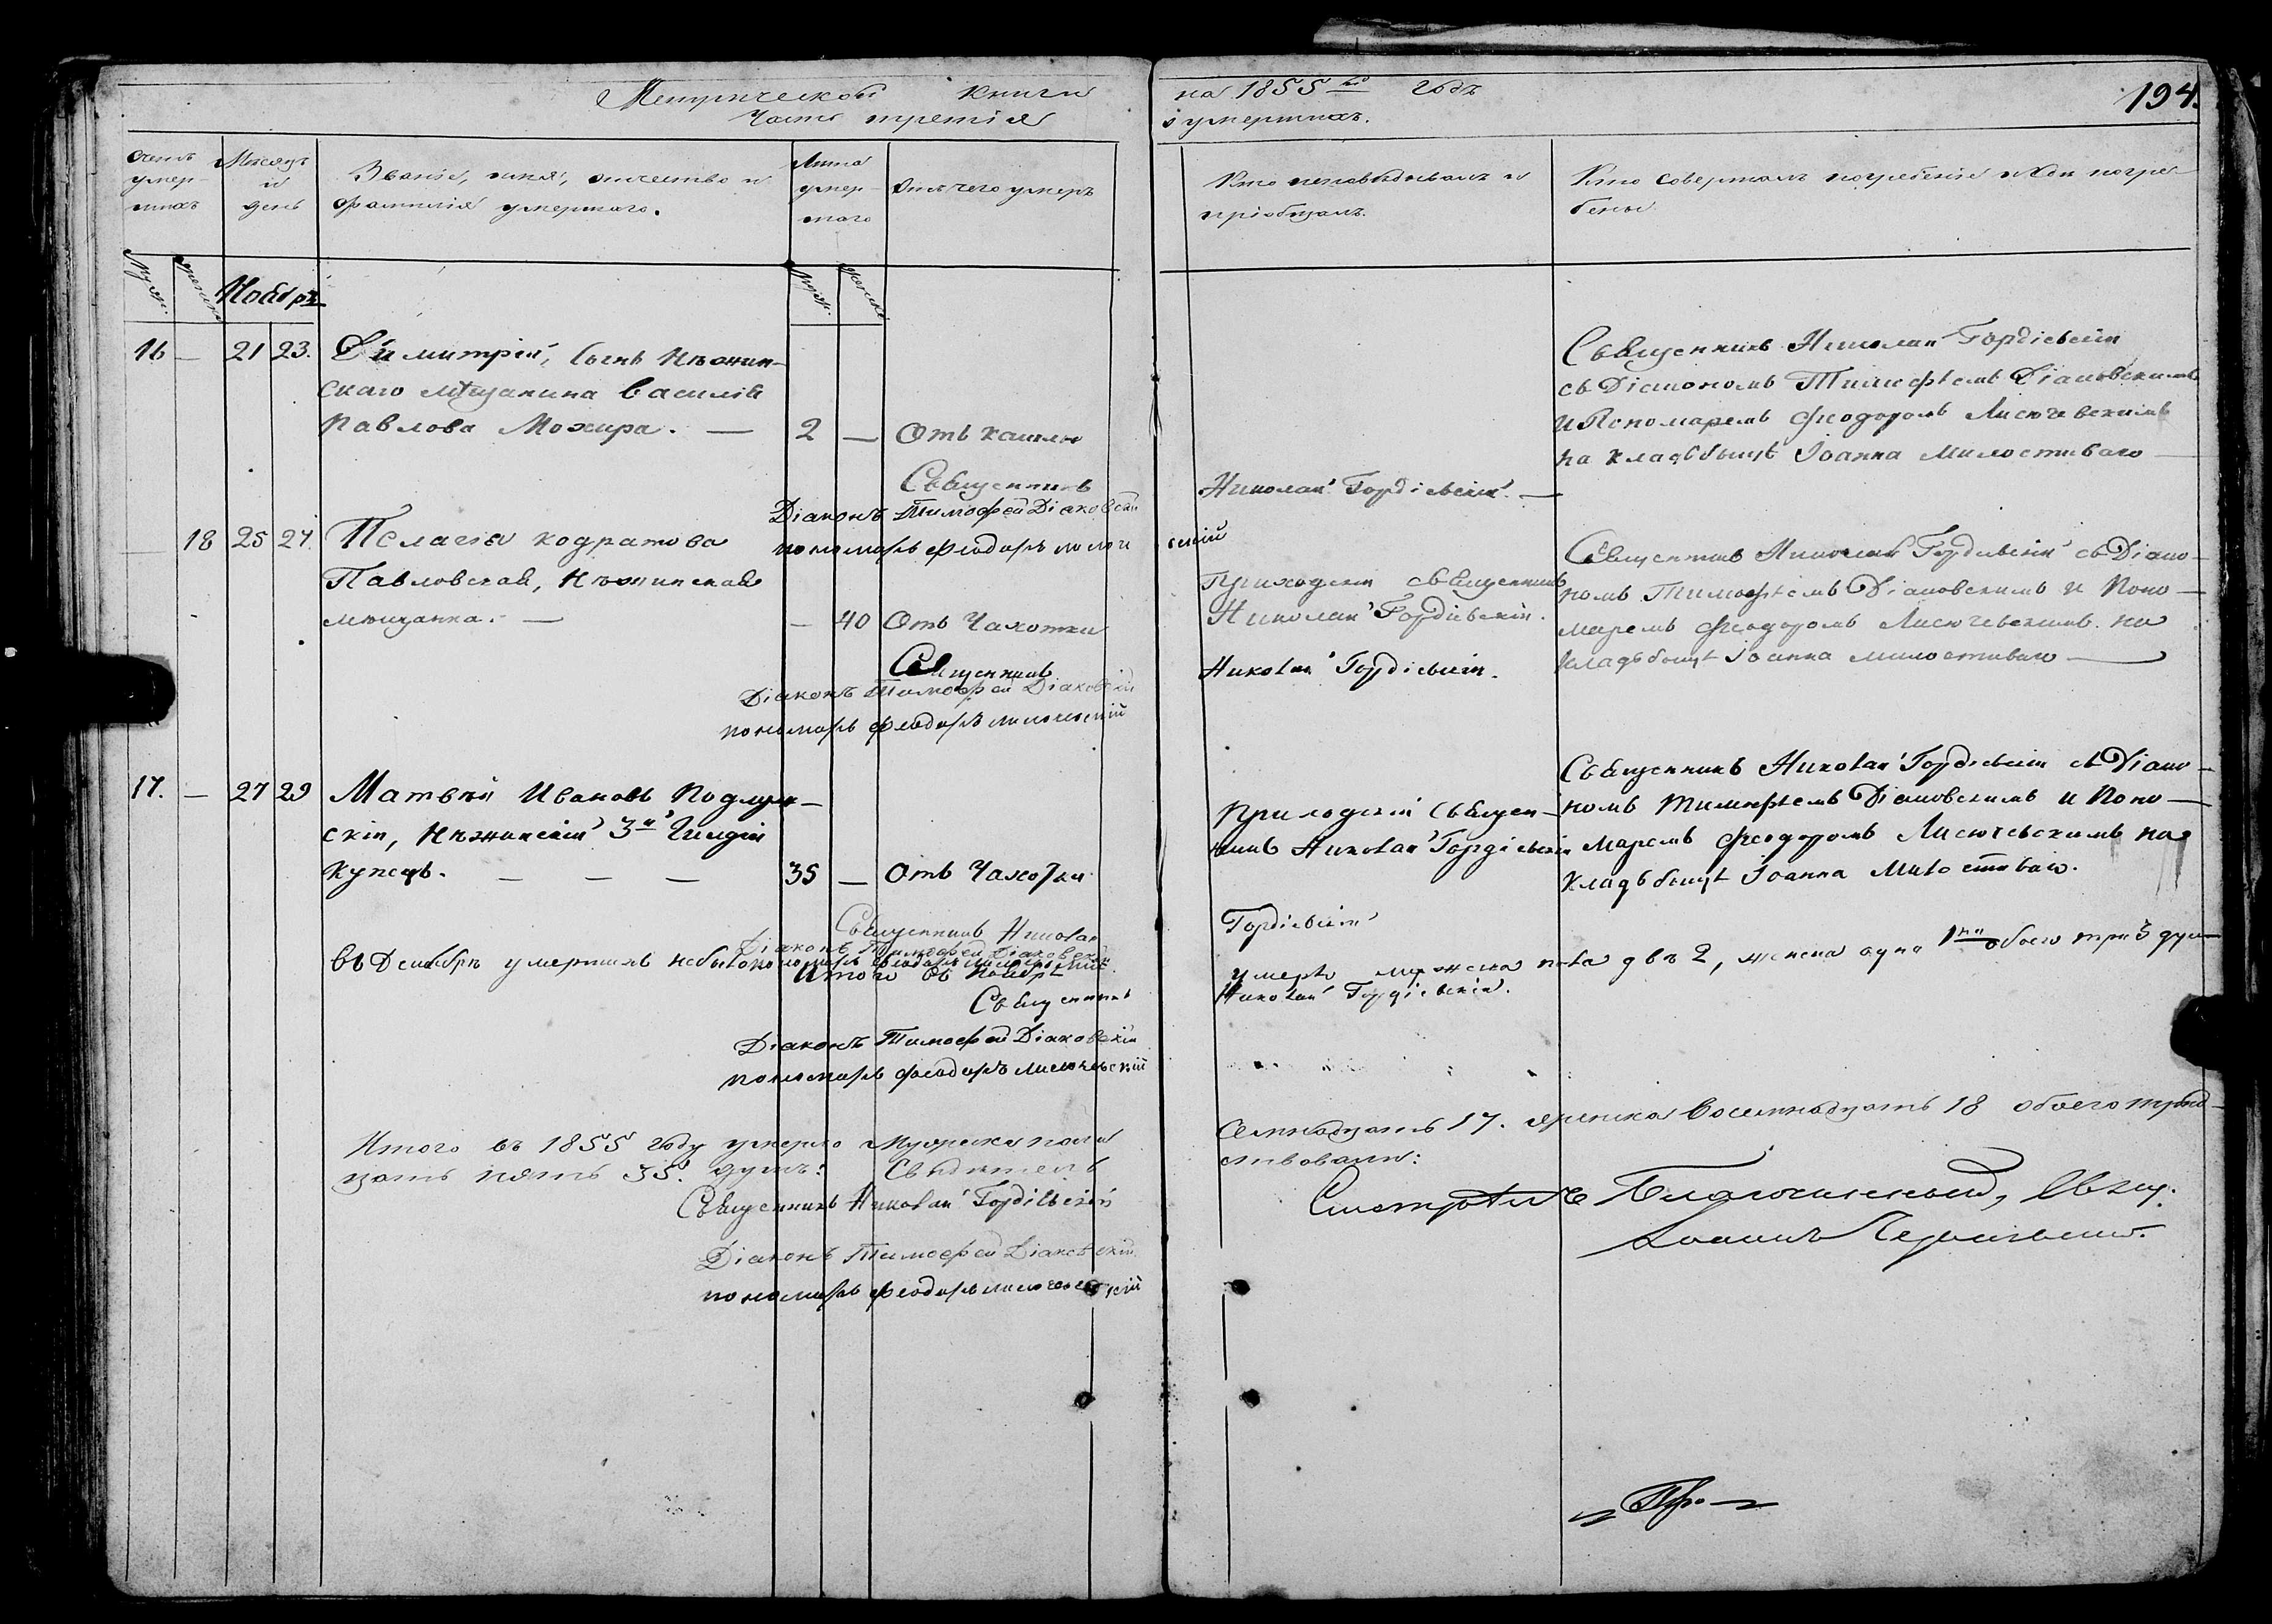 Метрической книги на 1855й годъ 194.
Часть третія о умершихъ.
Счетъ умер-шихъ
Мѣсяцъ и день
Званіе, имя, отчество и фамилія умершаго.
Лѣта умер-шаго
Отъ чего умеръ
Кто исповѣдывалъ и пріобщалъ.
Кто совершалъ погребеніе и гдѣ погре-бены
муж. женск. Ноябрь муж. женск.
16 — 21 23. Димитрій, сынъ Нѣжин-
скаго мѣщанина Василія
Павлова Мохира. — 2 — Отъ кашлю
Священникъ Николай Гордіевскій
съ Діакономъ Тимофѣемъ Діаковскимъ
и Пономаремъ Феодоромъ Лисючевскимъ
на кладбыщѣ Іоанна Милостиваго
Священникъ Николай Гордіевскій. —
Діаконъ Тимофей Діаковскій
пономарь Феодоръ Лисючевскій
— 18 25 27. Пелагія Кодратова
Павловская, Нѣжинская
мѣщанка. — — 40 Отъ Чахотки
Приходскій Священникъ
Николай Гордіевскій.
Священникъ Николай Гордіевскій съ Діако-
номъ Тимофѣемъ Діаковскимъ и Поно-
маремъ Феодоромъ Лисючевскимъ на
кладбыщѣ Іоанна Милостиваго —
Священникъ Николай Гордіевскій.
Діаконъ Тимофей Діаковскій
пономарь Феодоръ Лисючевскій
17. — 27 29 Матвѣй Ивановъ Подлуж-
скій, Нѣжинскій 3й Гилдіи
Купецъ. — — — 35 — Отъ Чахотки
Приходскій Священ-
никъ Николай Гордіевскій
Священникъ Николай Гордіевскій съ Діако-
номъ Тимофѣемъ Діаковскимъ и Поно-
маремъ Феодоромъ Лисючевскимъ на
кладбыщѣ Іоанна Милостиваго.
Священникъ Николай Гордіевскій
Діаконъ Тимофей Діаковскій
пономарь Феодоръ Лисючевскій
Итого въ Ноябрѣ умерло мужеска пола двѣ 2, женска одна 1 обоего три 3 душ
Въ Декабрѣ умершихъ небыло
Священникъ Николай Гордіевскій.
Діаконъ Тимофей Діаковскій
пономарь Феодоръ Лисючевскій
Итого въ 1855 году умерло мужеска пола семнадцать 17. женска восемнадцать 18 обоего трид-
цать пять 35. душъ: Свидѣтельствовали:
Священникъ Николай Гордіевскій
Діаконъ Тимофей Діаковскій
пономарь Феодоръ Лисючевскій
Смотрѣлъ Благочинный, Свящ.
Іоаннъ